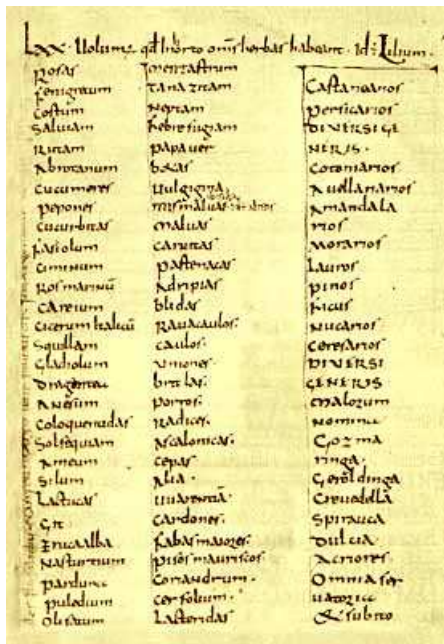 Lxx. Uolum; qd In orto omis herbas habeant. Id; Lilium.
Rosas
fenigrecum
Costum
Saluiam
Rutam
Abrotanum
Cucumeres
pepones
Cucurbitas
fasiolum
Ciminum
Rosmarinū
Careium
Cicerum Italicū
Squillam
Gladiolum
Dragentea
Anesum
Coloquentidas
Solsequiam
Ameum
Silum
Lactucas
Git
Eruca alba
Nasturtium
Parduna
puledium
Olisatum
Mentastrum
tanazitam
Neptam
febrefugiam
papauer
betas
Uulgigina
mismaluas
Maluas
Caruitas
pastenacas
Adripias
blidas
Rauacaulos.
Caulos.
Uniones.
britlas.
porros.
Radices.
Ascalonicas.
cepas.
Alia.
Uuarentiā.
cardones.
fabas maiores.
pisos mauriscos.
Coriandrum.
cerfolium.
Lacteridas
Castanearios
Persicarios
DIVERSI GE
NERIS.
Cotoniarios
Auellanarios
Amandala
rios
Morarios
Lauros
pinos
ficus
Nucarios
Ceresarios
DIVERSI
GENERIS
Malorum
Nomina
Gozma
ringa.
Geroldinga
Creuedella
Spirauca
Dulcia
Acriores.
Omnia ser
uatorice
& subito